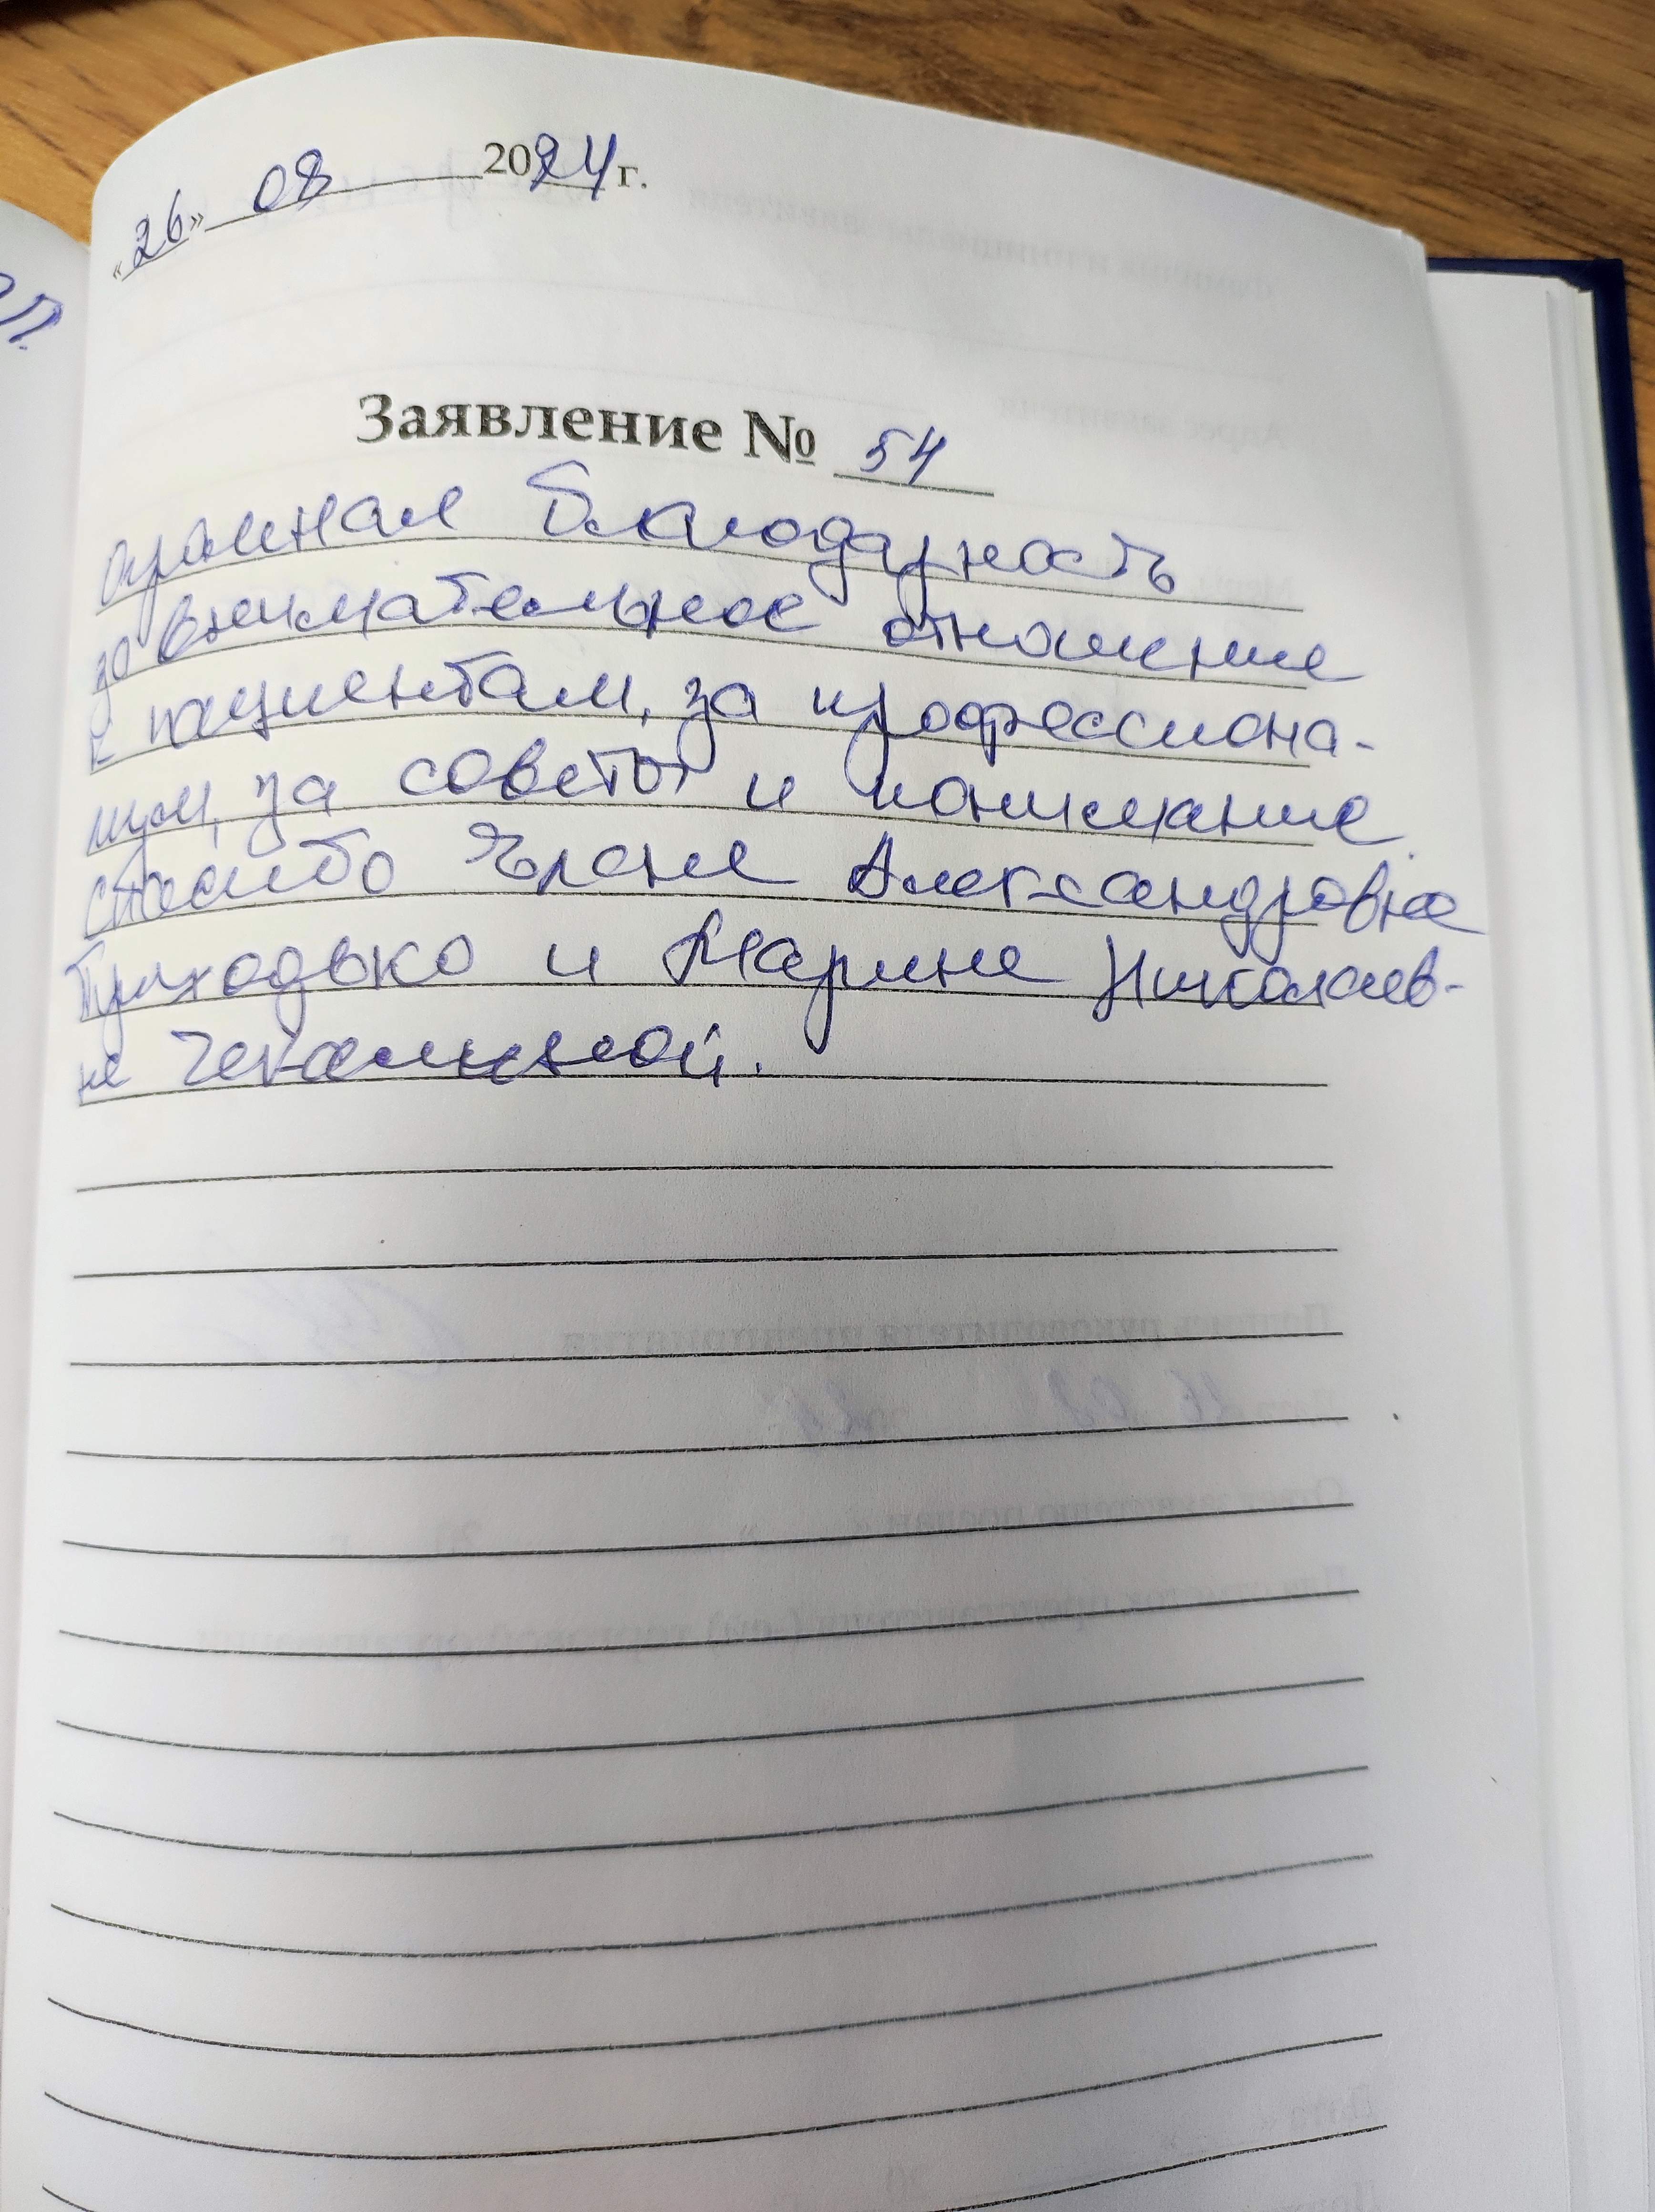 «26» 08 2024 г.
Заявление № 54
огромная благодарность
за внимательное отношение
к пациентам, за профессиона-
лизм, за советы и понимание.
спасибо Елене Александровне
Приходько и Марине Николаев-
не Чекалиной.